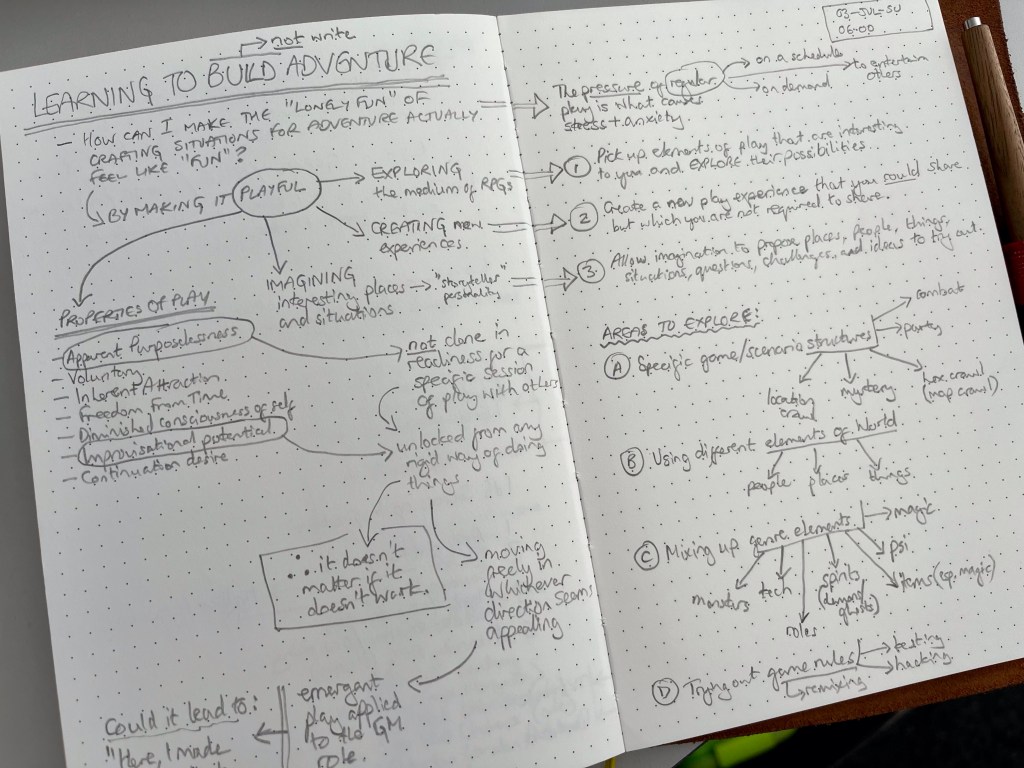 not write
LEARNING TO BUILD ADVENTURE
- HOW CAN I MAKE THE "LONELY FUN" OF
CRAFTING SITUATIONS FOR ADVENTURE ACTUALLY
FEEL LIKE "FUN"?
BY MAKING IT PLAYFUL
EXPLORING
the medium of RPGs
CREATING new
experiences.
IMAGINING
interesting places
and situations
"storyteller"
possibility
PROPERTIES OF PLAY
- Apparent Purposelessness.
- Voluntary
- Inherent Attraction.
- Freedom from Time.
- Diminished consciousness of self
- Improvisational potential
- Continuation desire
not done in
readiness for a
specific session
of play with others
unlocked from any
rigid way of doing
things
∴ it doesn't
matter if it
doesn't work.
moving
freely in
whichever
direction seems
appealing
emergent
play applied
to the GM
role.
Could it lead to:
"Here, I made
03-JUL-SU
06:00
The pressure of regular
play is what causes
stress + anxiety
on a schedule
on demand
to entertain
others
1 Pick up elements of play that are interesting
to you and EXPLORE their possibilities.
2 Create a new play experience that you could share
but which you are not required to share.
3. Allow imagination to propose places, people, things,
situations, questions, challenges, and ideas to try out.
AREAS TO EXPLORE:
A Specific game/scenario structures
combat
party
location
crawl
mystery
hex crawl
(map crawl)
B Using different elements of world
people
places
things.
C Mixing up genre elements
magic
psi
items (esp. magic)
spirits
(demons/
ghosts)
roles
tech
monsters
D Trying out game rules
testing
hacking
remixing